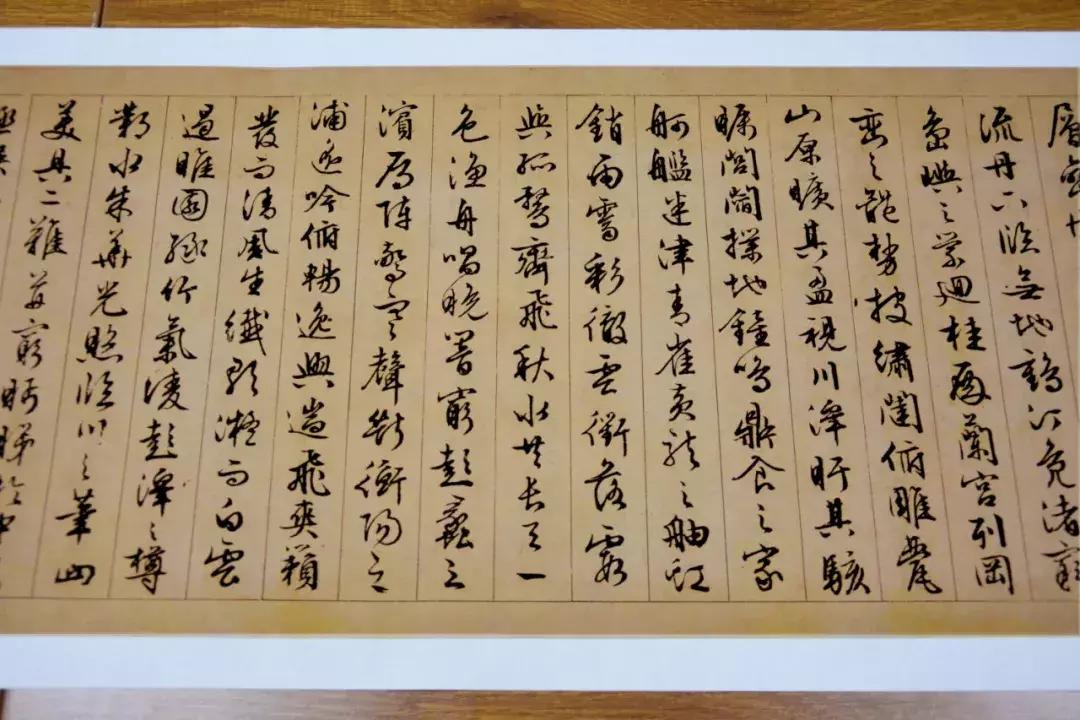 層
流丹下臨無地鶴汀鳧渚窮
島嶼之縈迴桂殿蘭宮列岡
巒之體勢披繡闥俯雕甍
山原曠其盈視川澤盱其駭
矚閭閻撲地鐘鳴鼎食之家
舸艦迷津青雀黃龍之舳虹
銷雨霽彩徹雲衢落霞
與孤鶩齊飛秋水共長天一
色漁舟唱晚響窮彭蠡之
濱雁陣驚寒聲斷衡陽之
浦遙吟俯暢逸興遄飛爽籟
發而清風生纖歌凝而白雲
遏睢園綠竹氣凌彭澤之樽
鄴水朱華光照臨川之筆四
美具二難并窮眄睇於中